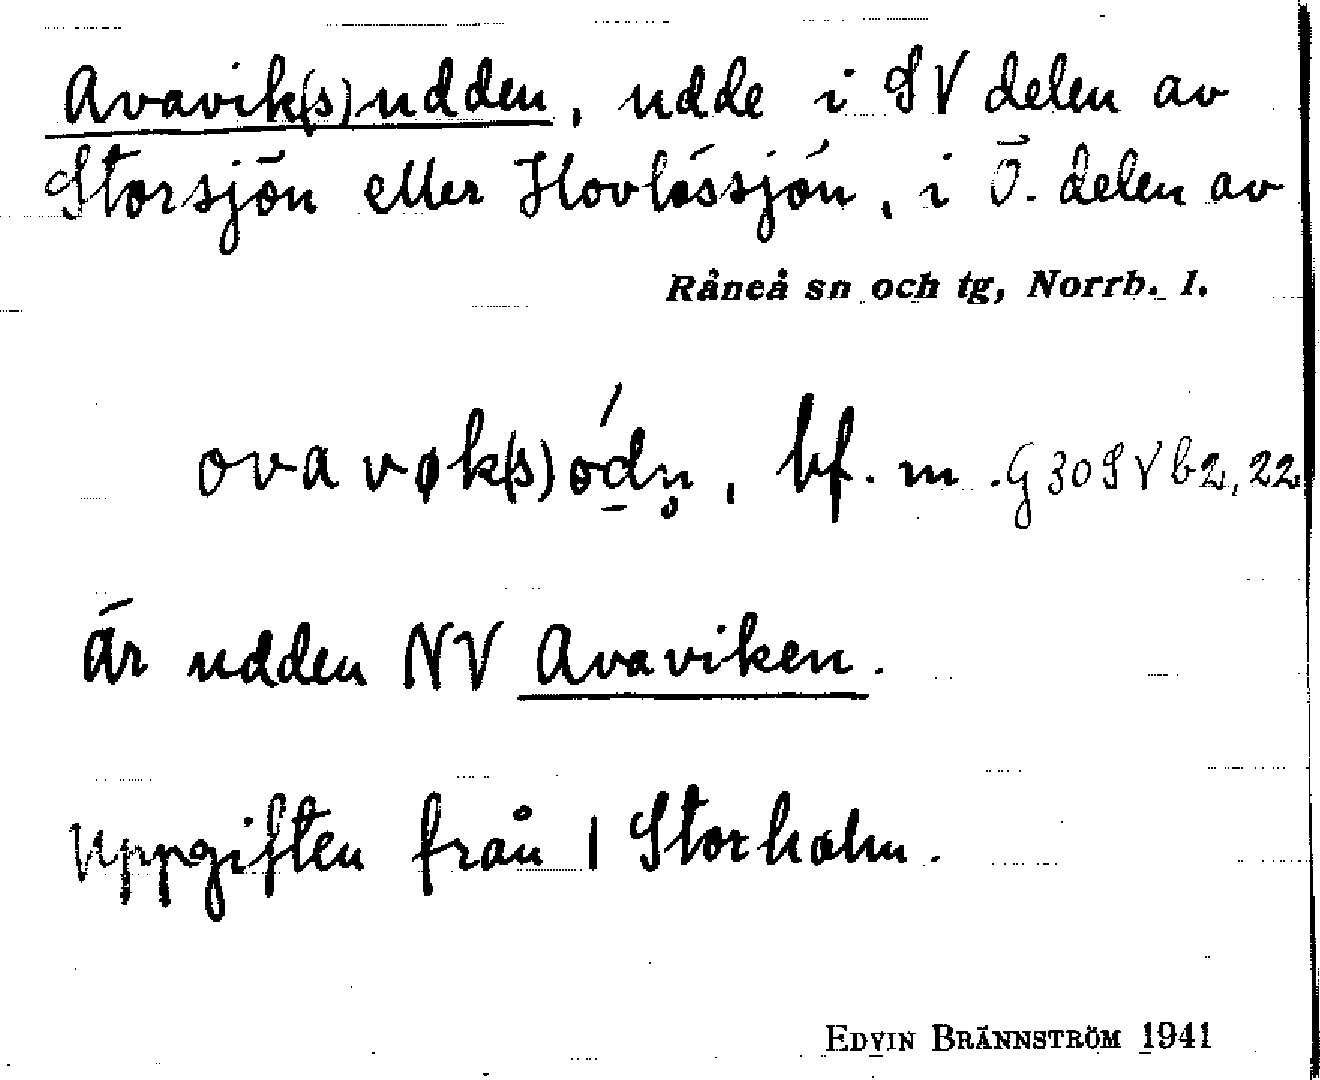 Avavik(s)udden, udde i SV delen av
Storsjön eller Hovlössjön, i Ö. delen av
Råneå sn och tg, Norrb. l.
ova vøk(s)ód̲n̥, bf. m. G 30 SV b 2, 22
är udden NV Avaviken.
Uppgiften från 1 Storholm.
EDVIN BRÄNNSTRÖM 1941